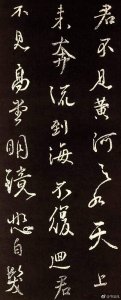 君不見黃河之水天上
來奔流到海不復迴君
不見高堂明鏡悲白髮